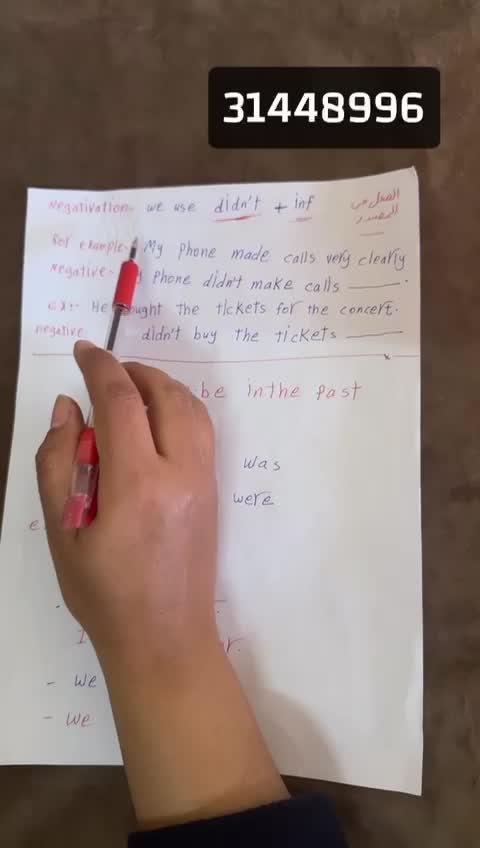 31448996
Negativation:- we use didn't + inf
الفعل في المصدر
for example:- My phone made calls very clearly
Negative:- phone didn't make calls ——.
ex:- He bought the tickets for the concert.
negative: didn't buy the tickets ——
be in the past
was
were
- we
- we